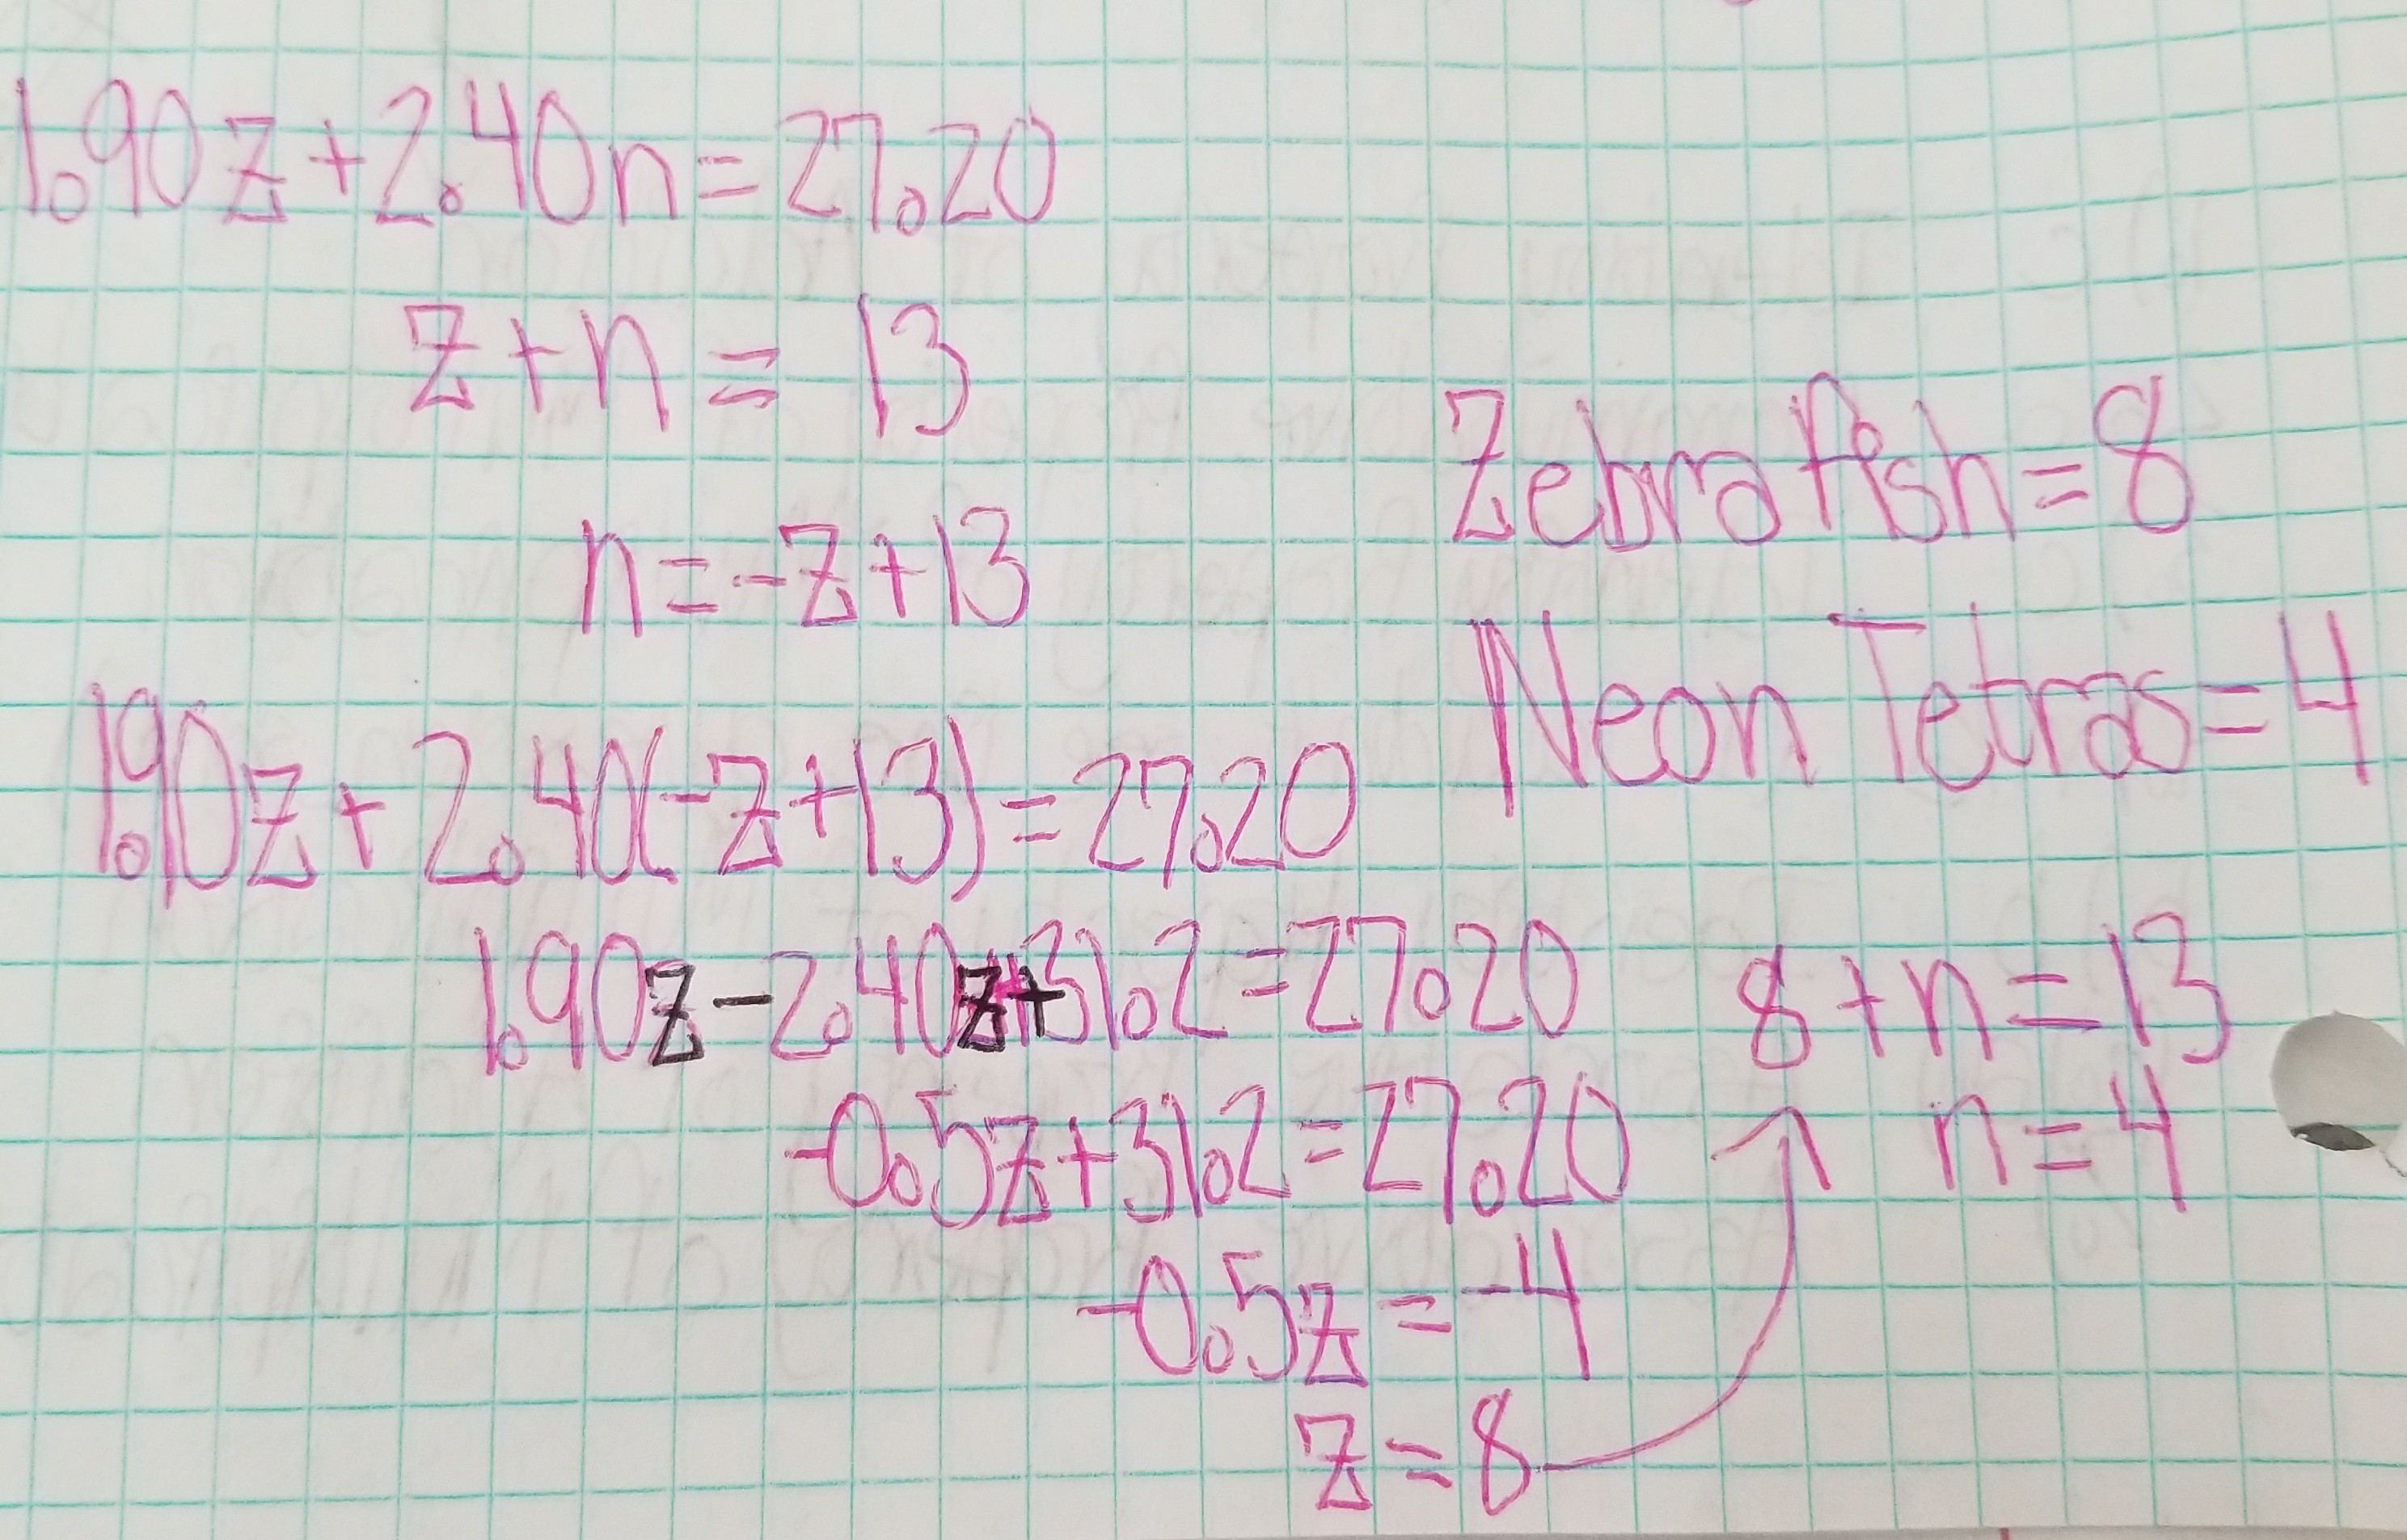 1.90z+2.40n=27.20
z+n=13
n=-z+13
1.90z+2.40(-z+13)=27.20
1.90z-2.40z+31.2=27.20
-0.5z+31.2=27.20
-0.5z=-4
z=8
8+n=13
n=4
Zebra fish=8
Neon Tetras=4